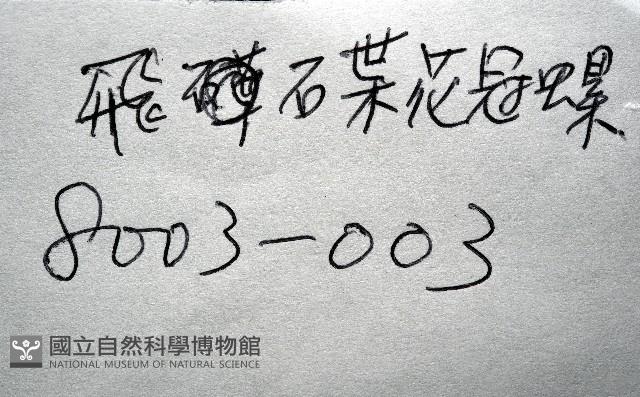 飛彈石葉花冠螺
8003-003
國立自然科學博物館
NATIONAL MUSEUM OF NATURAL SCIENCE